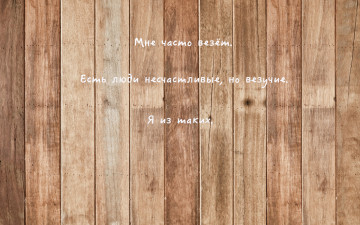 Мне часто везёт.
Есть люди несчастливые, но везучие.
Я из таких.